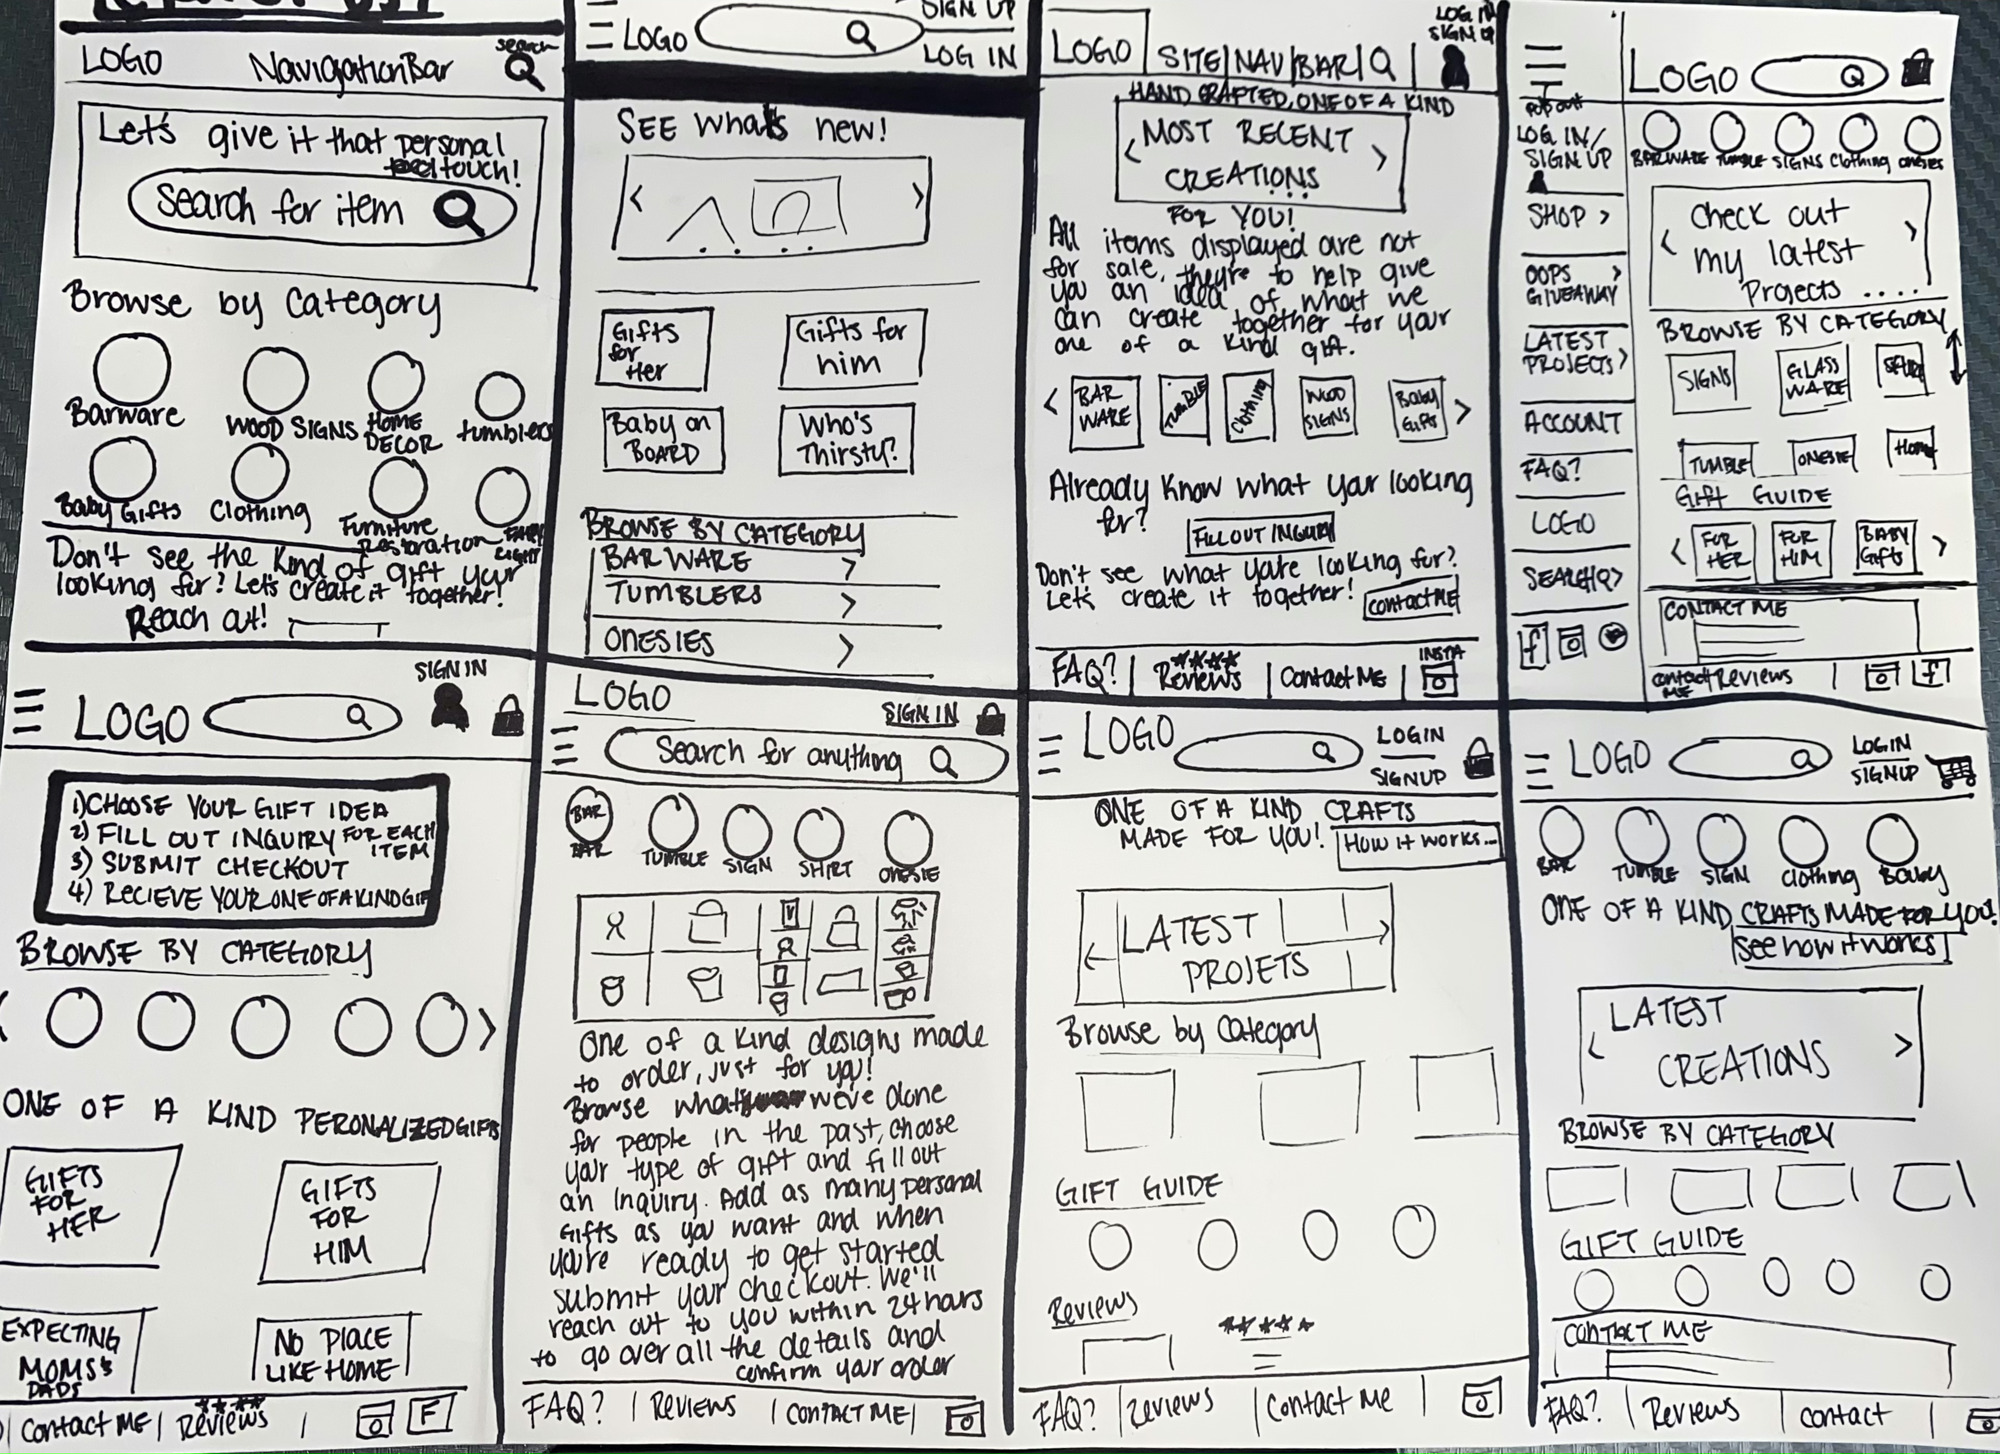 LOGO
Navigation Bar
search
Let's give it that personal
touch!
Search for item
Browse by Category
Barware
WOOD SIGNS
HOME
DECOR
tumblers
Baby Gifts
Clothing
Furniture
Restoration
Don't see the kind of gift your
looking for? Let's create it together!
Reach out!
SIGN UP
LOGO
LOG IN
SEE what's new!
Gifts
for
Her
Gifts for
him
Baby on
BOARD
Who's
Thirsty?
BROWSE BY CATEGORY
BAR WARE >
TUMBLERS >
ONESIES >
LOGO
SITE|NAV|BAR|
LOG IN
SIGN UP
HAND CRAFTED, ONE OF A KIND
< MOST RECENT >
CREATIONS
FOR YOU!
All items displayed are not
for sale, they're to help give
you an idea of what we
can create together for your
one of a kind gift.
<
BAR
WARE
TUMBLE
Clothing
WOOD
SIGNS
Baby
Gifts
>
Already know what your looking
for?
FILL OUT INQUIRY
Don't see what you're looking for?
Let's create it together!
contact ME
FAQ? | Reviews | Contact ME |
INSTA
POP OUT
LOG IN/
SIGN UP
SHOP >
OOPS >
GIVEAWAY
LATEST
PROJECTS >
ACCOUNT
FAQ?
LOGO
SEARCH >
f
LOGO
BARWARE TUMBLE SIGNS Clothing onesies
Check out
< my latest >
Projects ....
BROWSE BY CATEGORY
SIGNS
GLASS
WARE
TUMBLE
ONESIE
Home
Gift GUIDE
<
FOR
HER
FOR
HIM
BABY
Gifts
>
CONTACT ME
contact
ME
Reviews
f
SIGN IN
LOGO
1) CHOOSE YOUR GIFT IDEA
2) FILL OUT INQUIRY FOR EACH
ITEM
3) SUBMIT CHECKOUT
4) RECIEVE YOUR ONE OF A KIND GIF
BROWSE BY CATEGORY
ONE OF A KIND PERONALIZED GIFTS
GIFTS
FOR
HER
GIFTS
FOR
HIM
EXPECTING
MOMS &
DADS
NO PLACE
LIKE HOME
| Contact ME | Reviews |
F
LOGO
SIGN IN
Search for anything
BAR
BAR TUMBLE SIGN SHIRT ONESIE
One of a kind designs made
to order, just for you!
Browse what we've done
for people in the past, choose
your type of gift and fill out
an inquiry. Add as many personal
Gifts as you want and when
you're ready to get started
submit your checkout. We'll
reach out to you within 24 hours
to go over all the details and
confirm your order
FAQ? | REVIEWS | CONTACT ME |
LOGO
LOGIN
SIGNUP
ONE OF A KIND CRAFTS
MADE FOR YOU!
HOW IT WORKS...
LATEST
PROJETS
Browse by Category
GIFT GUIDE
Reviews
FAQ? | Reviews | Contact Me |
LOGO
LOGIN
SIGNUP
BAR TUMBLE SIGN Clothing Baby
ONE OF A KIND CRAFTS MADE FOR YOU!
see how it works
LATEST
< CREATIONS >
BROWSE BY CATEGORY
GIFT GUIDE
CONTACT ME
FAQ? | Reviews | contact |